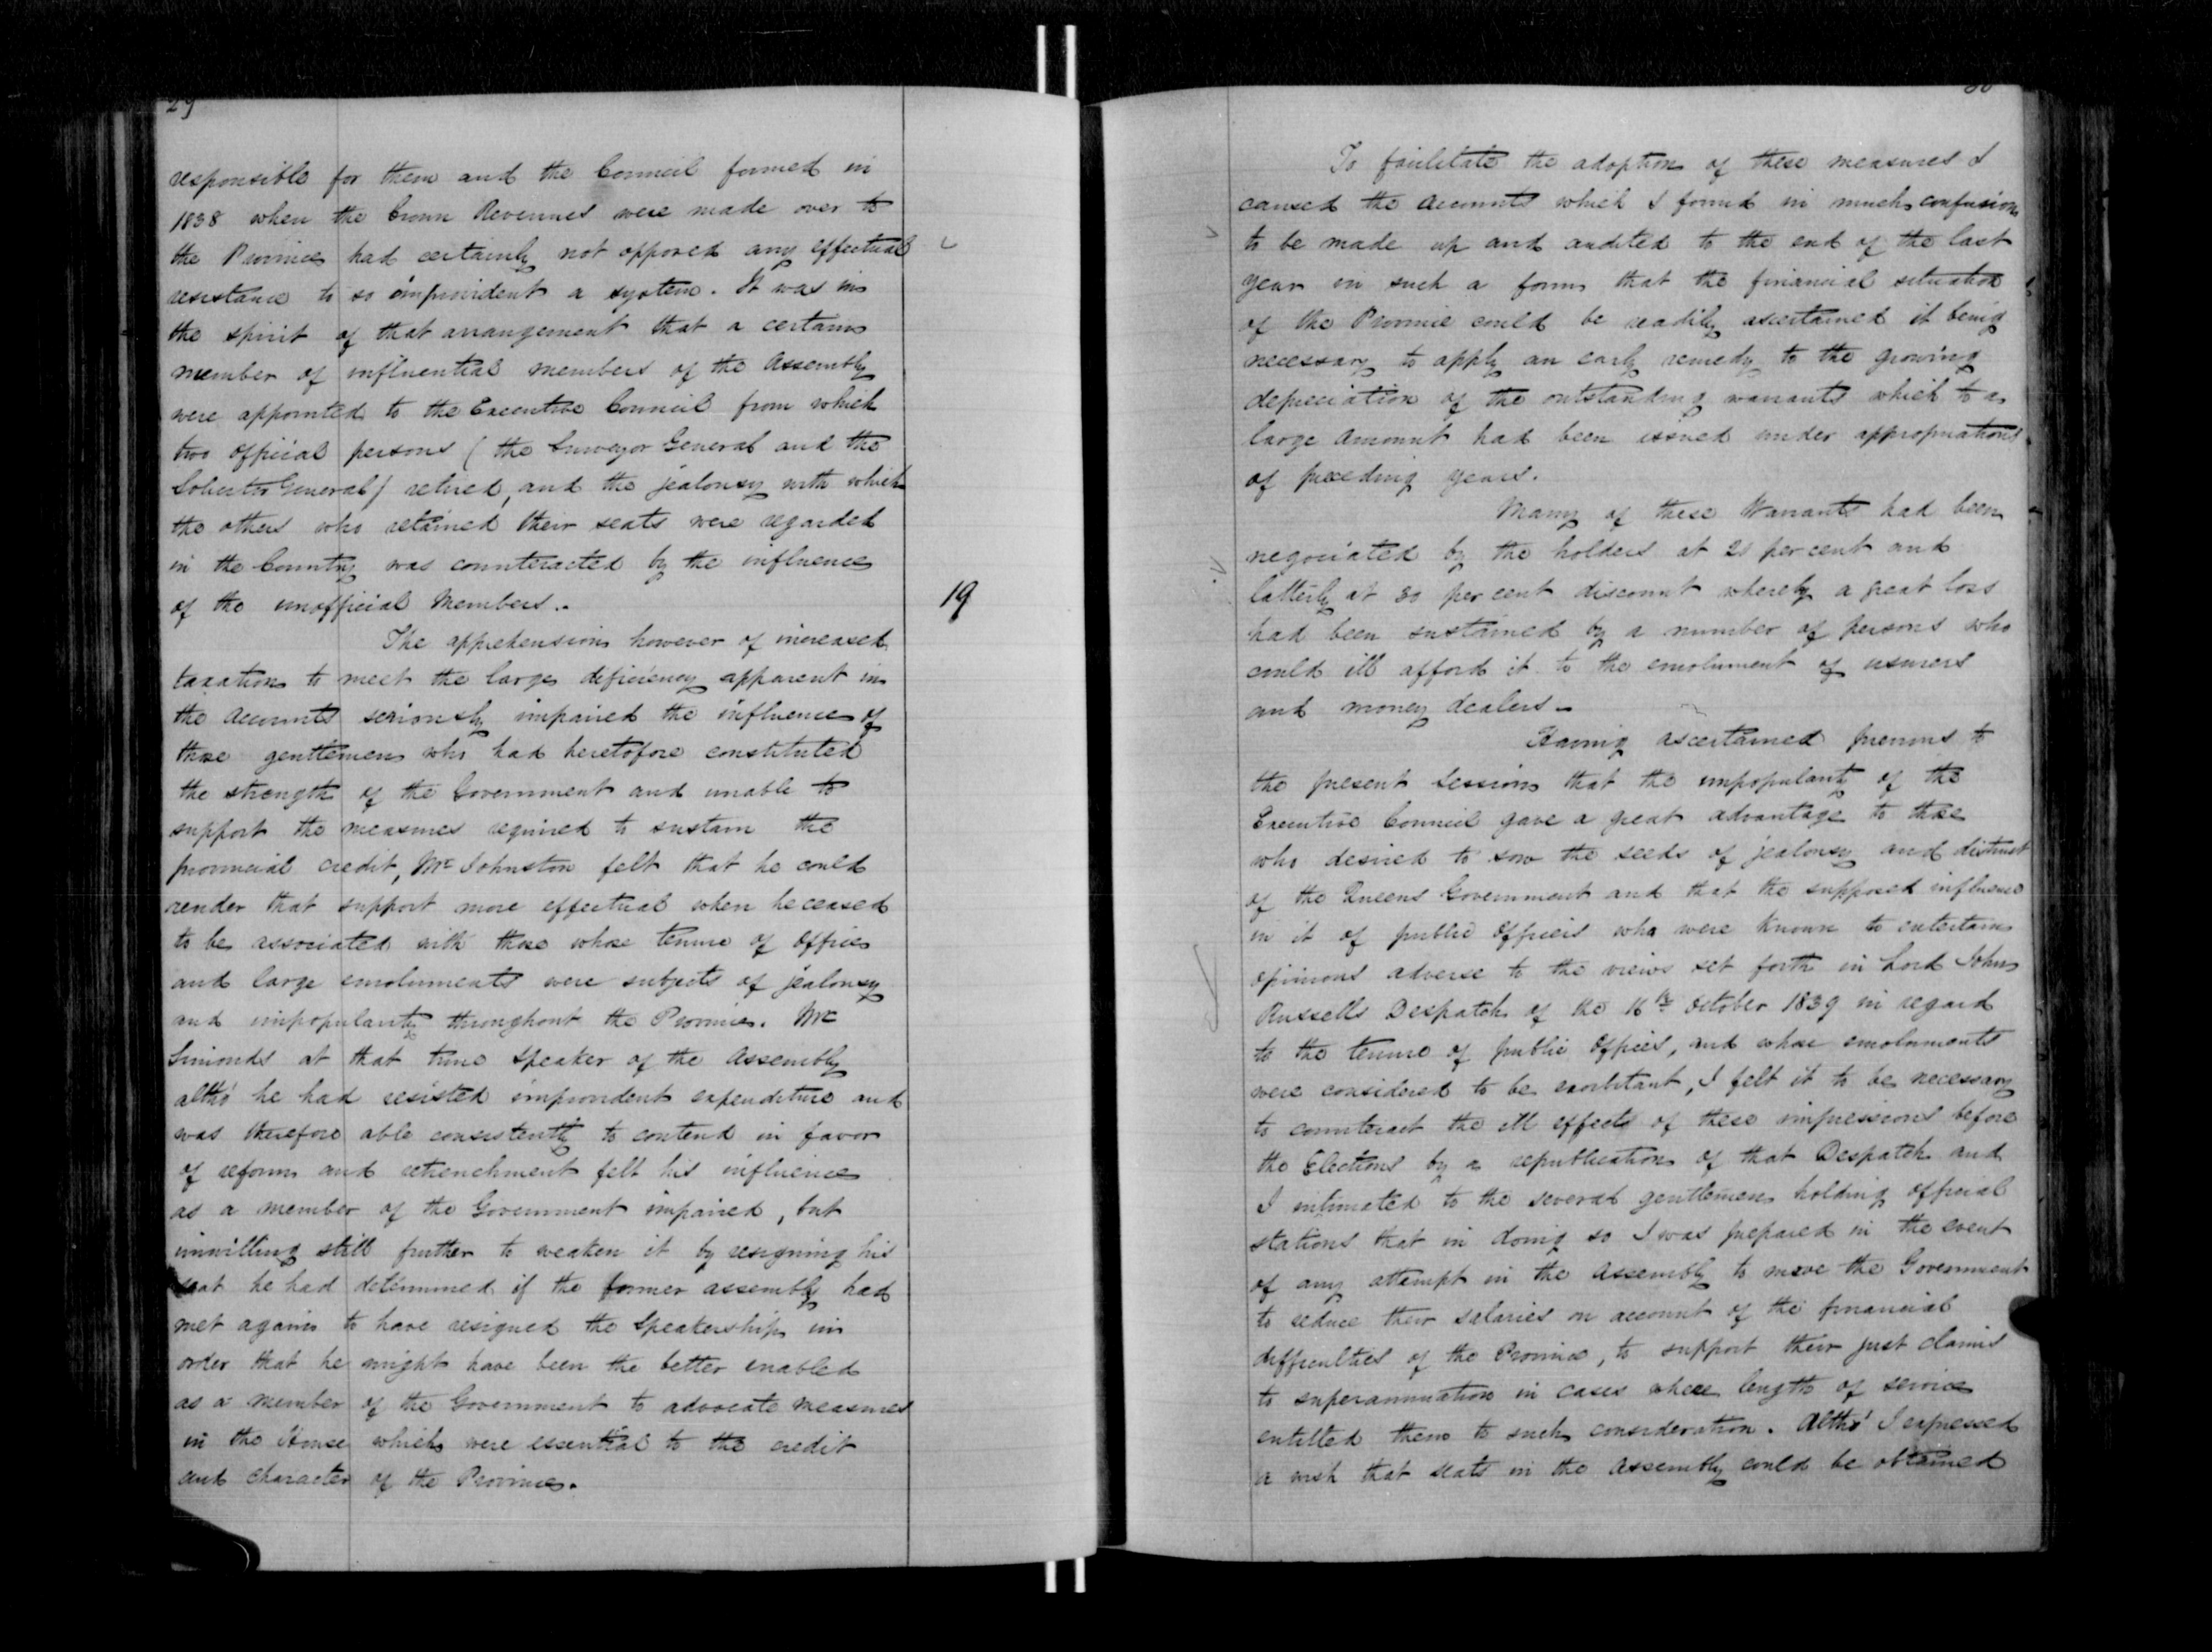 29
responsible for them and the Council formed in
1838 when the Crown Revenues were made over to
the Province had certainly not opposed any effectual
resistance to so improvident a system. It was in
the spirit of that arrangement that a certain
member of influential members of the Assembly
were appointed to the Executive Council from which
two official persons (the Surveyor General and the
Solicitor General) retired, and the jealousy with which
the others who retained their seats were regarded
in the Country was counteracted by the influence
of the unofficial Members.
19
The apprehension however of increased
taxation to meet the large deficiency apparent in
the accounts seriously impaired the influence of
those gentlemen who had heretofore constituted
the strength of the Government and unable to
support the measures required to sustain the
provincial credit, Mr Johnston felt that he could
render that support more effectual when he ceased
to be associated with those whose tenure of office
and large emoluments were subjects of jealousy
and unpopularity throughout the Province. Mr
Simonds at that time Speaker of the Assembly
altho' he had resisted improvident expenditure and
was therefore able consistently to contend in favor
of reform and retrenchment felt his influence
as a member of the Government impaired, but
unwilling still further to weaken it by resigning his
seat he had determined if the former assembly had
met again to have resigned the Speakership in
order that he might have been the better enabled
as a member of the Government to advocate measures
in the House which were essential to the credit
and character of the Province.
To facilitate the adoption of these measures I
caused the accounts which I found in much confusion
to be made up and audited to the end of the last
year in such a form that the financial situation
of the Province could be readily ascertained it being
necessary to apply an early remedy to the growing
depreciation of the outstanding warrants which to a
large amount had been issued under appropriations
of preceding years.
Many of these Warrants had been
negociated by the holders at 20 per cent and
latterly at 30 per cent discount whereby a great loss
had been sustained by a number of persons who
could ill afford it to the emolument of usurers
and money dealers.
Having ascertained previous to
the present Session that the unpopularity of the
Executive Council gave a great advantage to those
who desired to sow the seeds of jealousy and distrust
of the Queens Government and that the supposed influence
in it of public Officers who were known to entertain
opinions adverse to the views set forth in Lord John
Russells Despatch of the 16th October 1839 in regard
to the tenure of public Offices, and whose emoluments
were considered to be exorbitant, I felt it to be necessary
to counteract the ill effects of these impressions before
the Elections by a republication of that Despatch and
I intimated to the several gentlemen holding official
stations that in doing so I was prepared in the event
of any attempt in the Assembly to move the Government
to reduce their salaries on account of the financial
difficulties of the Province, to support their just claims
to superannuation in cases where length of service
entitled them to such consideration. Altho' I expressed
a wish that seats in the Assembly could be obtained